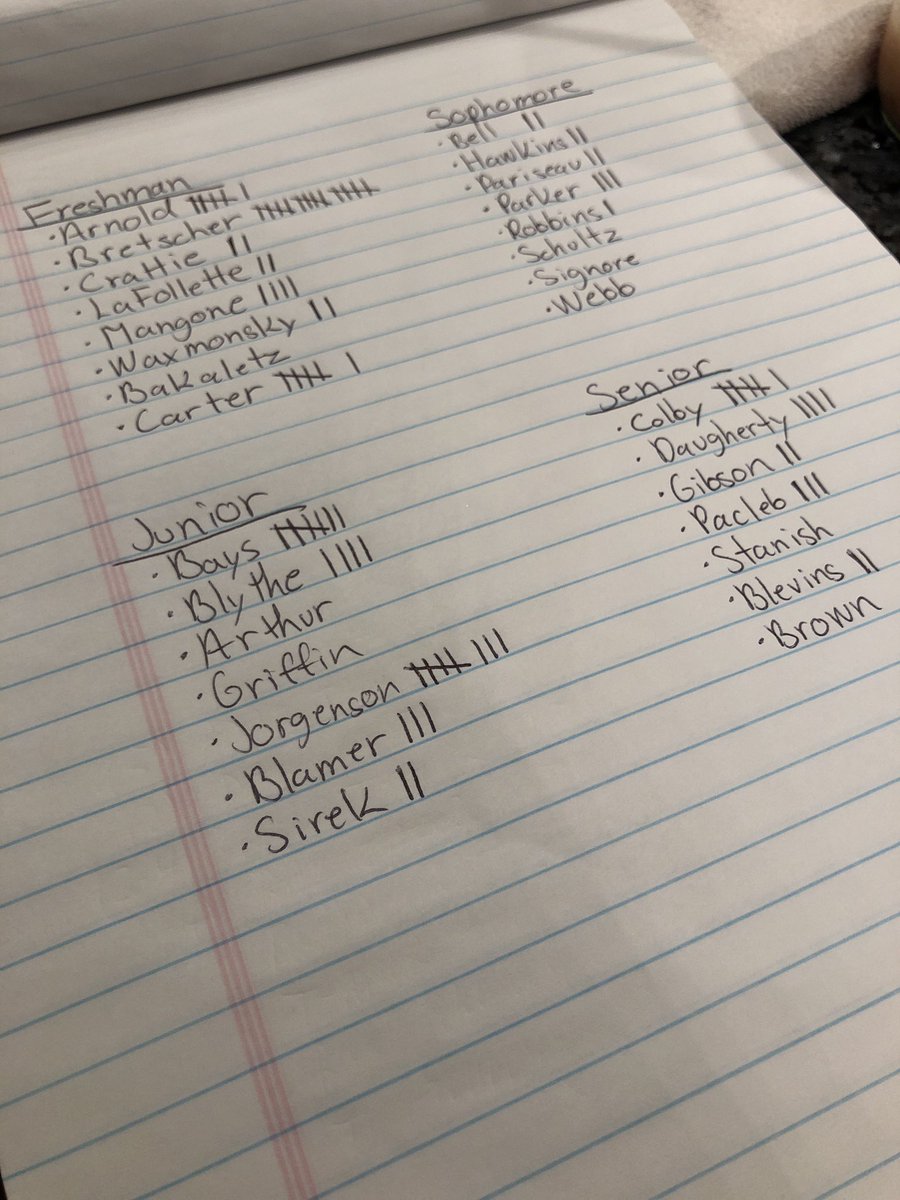 Freshman
· Arnold 𝍸 |
· Bretscher 𝍸 𝍸 𝍸
· Crattie ||
· LaFollette ||
· Mangone ||||
· Waxmonsky ||
· Bakaletz
· Carter 𝍸 |
Sophomore
· Bell ||
· Hawkins ||
· Pariseau ||
· Parker |||
· Robbins |
· Schultz
· Signore
· Webb
Junior
· Bays 𝍸 ||
· Blythe ||||
· Arthur
· Griffin
· Jorgenson 𝍸 |||
· Blamer |||
· Sirek ||
Senior
· Colby 𝍸 |
· Daugherty ||||
· Gibson ||
· Pacleb |||
· Stanish
· Blevins ||
· Brown